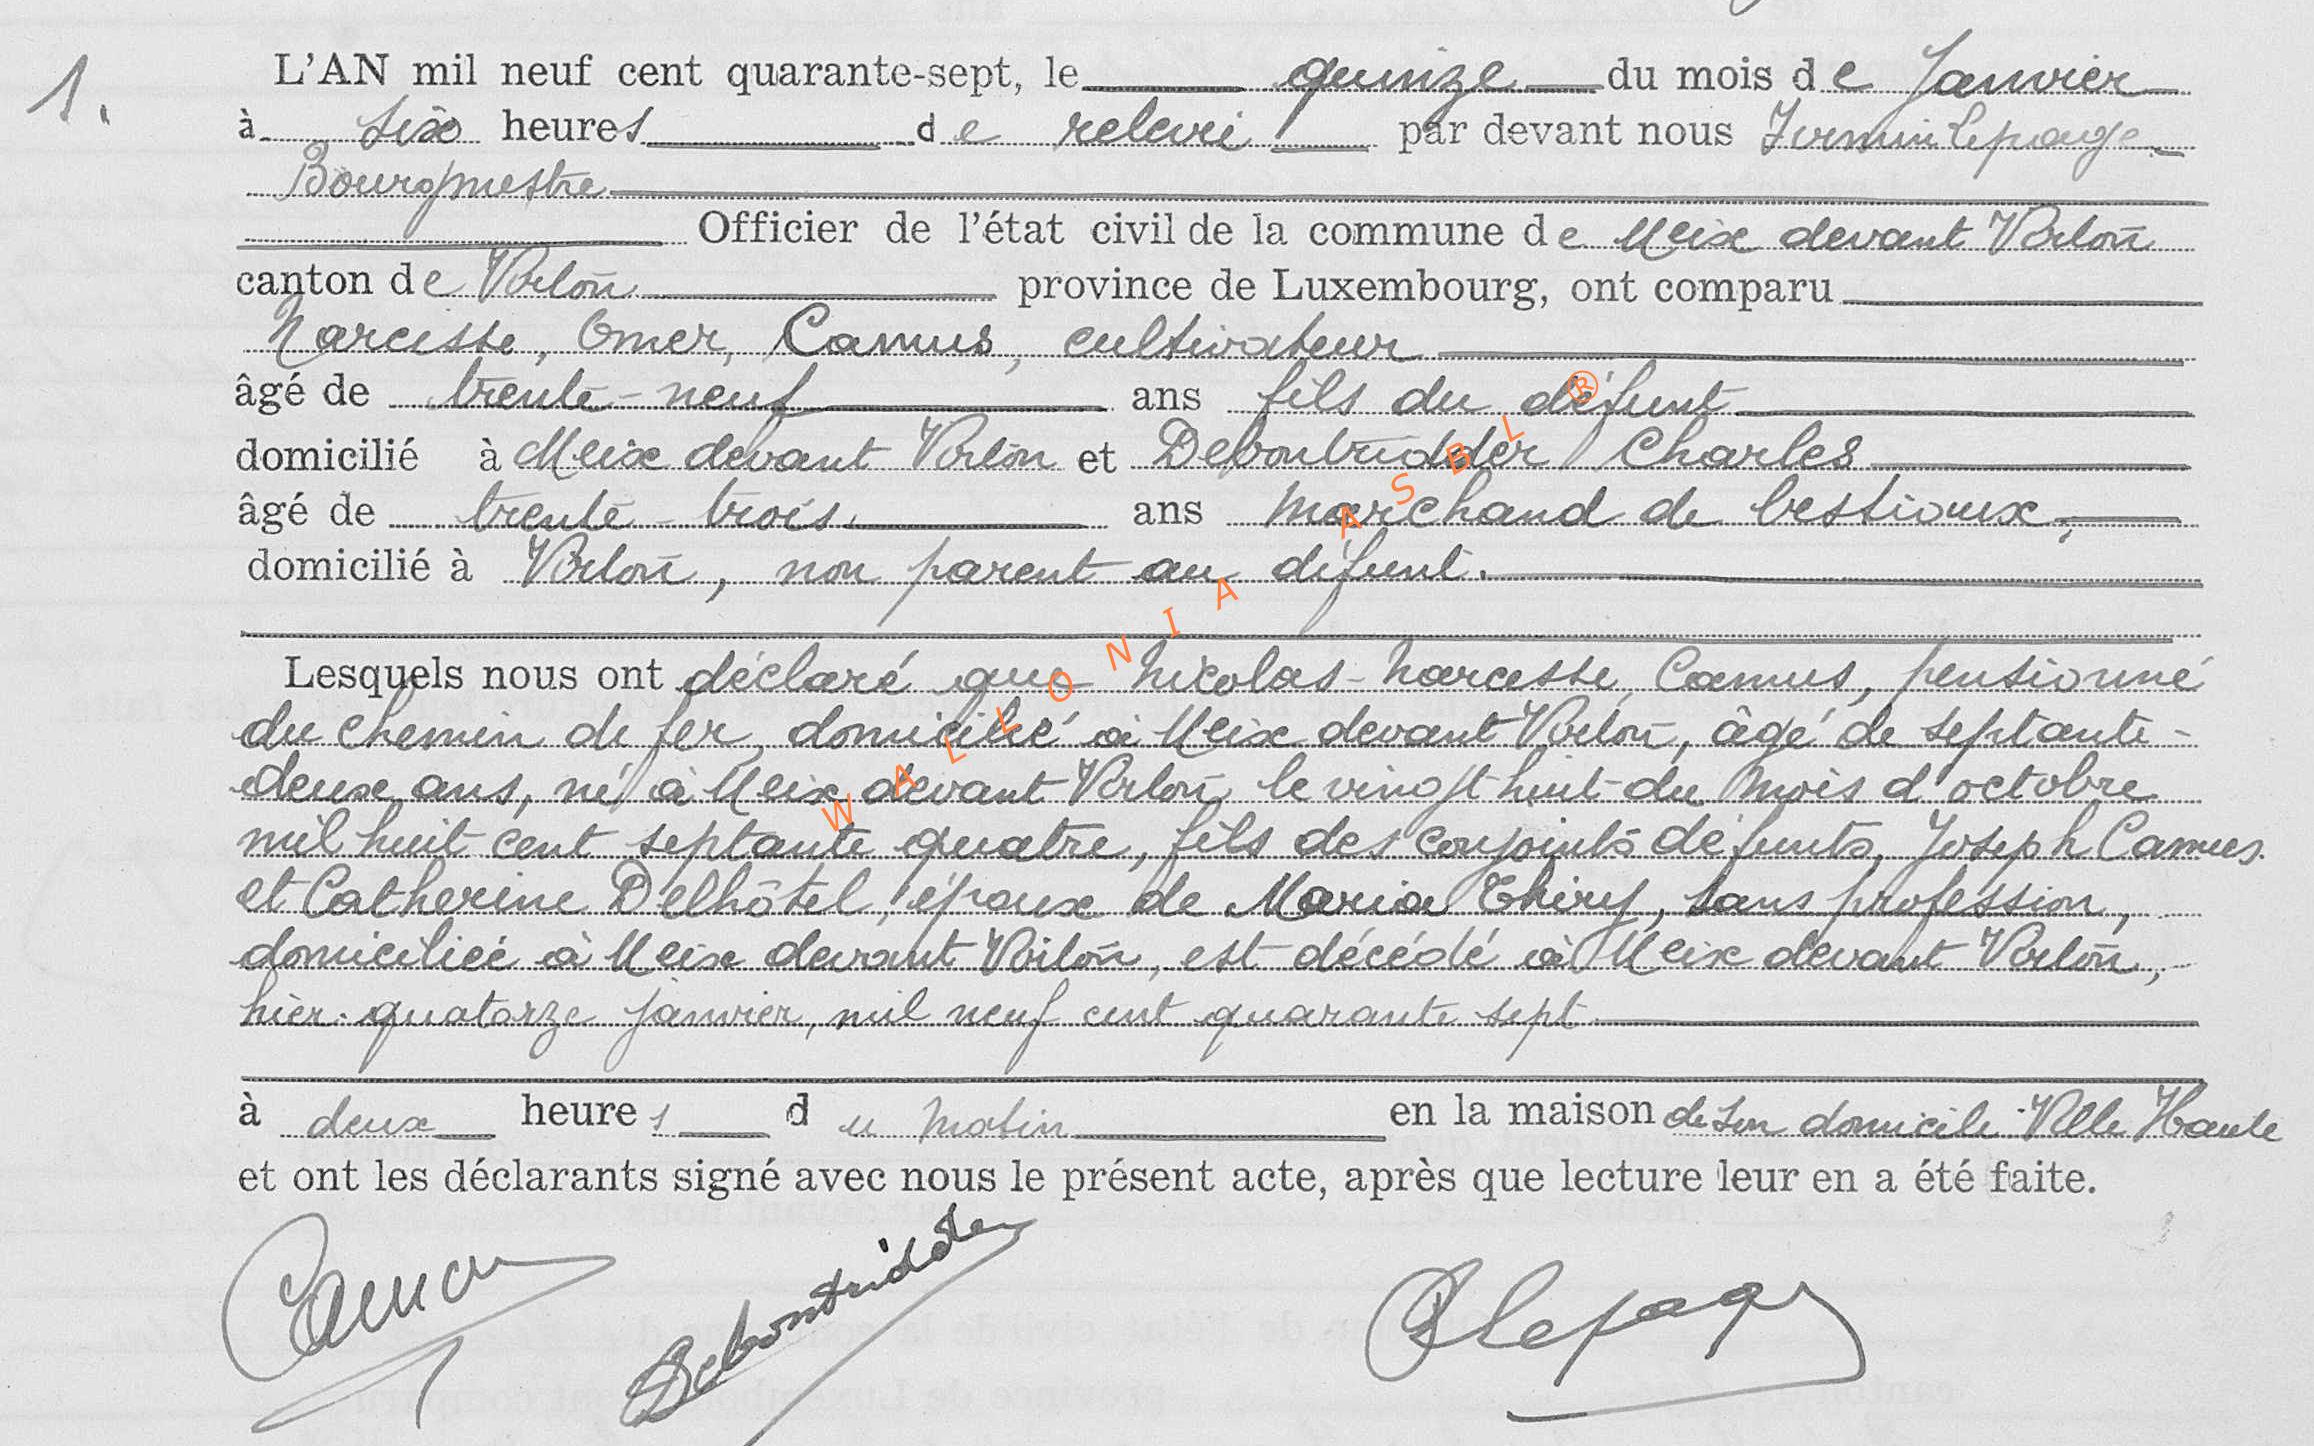 1.
L'AN mil neuf cent quarante-sept, le quinze du mois de Janvier
à six heures de relevé par devant nous Firmin Lepage
Bourgmestre
Officier de l'état civil de la commune de Meix devant Virton
canton de Virton province de Luxembourg, ont comparu
Narcisse, Omer, Camus, cultivateur
âgé de trente-neuf ans fils du défunt
domicilié à Meix devant Virton et Debontridder Charles
âgé de trente-trois ans marchand de bestiaux,
domicilié à Virton, non parent au défunt.
Lesquels nous ont déclaré que Nicolas-Narcisse Camus, pensionné
du chemin de fer, domicilié à Meix devant Virton, âgé de septante-
deux ans, né à Meix devant Virton le vingt huit du mois d'octobre
mil huit cent septante quatre, fils des conjoints défunts, Joseph Camus
et Catherine Delhôtel, époux de Maria Thiry, sans profession,
domiciliée à Meix devant Virton, est décédé à Meix devant Virton,
hier quatorze janvier, mil neuf cent quarante sept
à deux heures du matin en la maison de son domicile Ville Haute
et ont les déclarants signé avec nous le présent acte, après que lecture leur en a été faite.
Camus Debontridder Lepage
WALLONIA ASBL ®